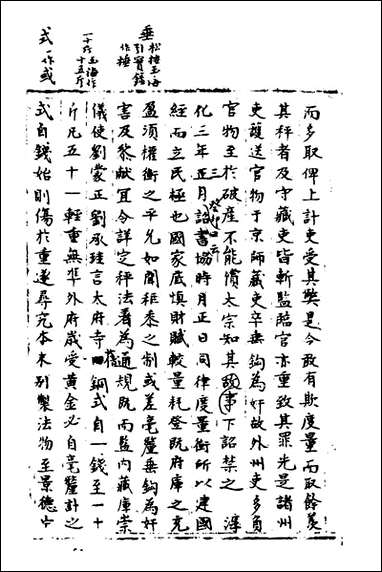 垂 松按玉海
引實錄
作捶
式 一作或
一十斤玉海作
十五斤
而多取俾上計吏受其弊是令敢有欺度量而取餘羨
其秤者及守藏吏皆斬監臨官亦重致其罪先是諸州
吏護送官物于京師藏吏卒垂鈎為奸故外州吏多負
官物至於破產不能償太宗知其故事下詔禁之 淳
化三年正月詔書協時月正日同律度量衡所以建國
經而立民極也國家底慎財賦較量耗登既府庫之充
盈須權衡之平允如聞秬黍之制或差毫釐垂鈎為奸
害及黎獻宜令詳定秤法著為通規既而監內藏庫崇
儀使劉蒙正劉承珪言太府寺舊銅式自一錢至一十
斤凡五十一輕重無準外府歲受黃金必自毫釐計之
式自錢始則傷於重遂尋究本末別製法物至景德中